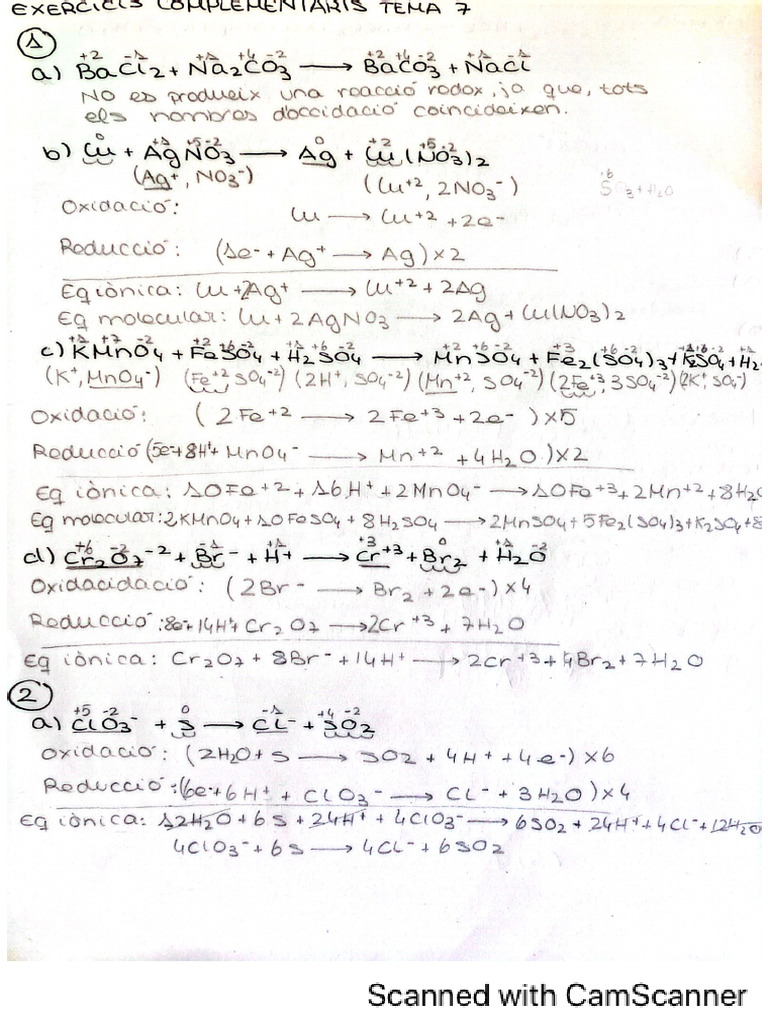 EXERCICIS COMPLEMENTARIS TEMA 7
1
+2 -1 +1 +4 -2 +2 +4 -2 +1 -1
a) BaCl2 + Na2CO3 ⟶ BaCO3 + NaCl
NO es produeix una reacció redox, ja que, tots
els nombres d'occidació coincideixen.
0 +1 +5 -2 0 +2 +5 -2
b) Cu + AgNO3 ⟶ Ag + Cu(NO3)2
(Ag+, NO3-) (Cu+2, 2NO3-)
Oxidació: Cu ⟶ Cu+2 + 2e-
Reducció: (1e- + Ag+ ⟶ Ag) x2
Eq iònica: Cu + 2Ag+ ⟶ Cu+2 + 2Ag
Eq molecular: Cu + 2AgNO3 ⟶ 2Ag + Cu(NO3)2
+1 +7 -2 +2 +6 -2 +1 +6 -2 +2 +6 -2 +3 +6 -2 +1 +6 -2 +1
c) KMnO4 + FeSO4 + H2SO4 ⟶ MnSO4 + Fe2(SO4)3 + K2SO4 + H2
(K+, MnO4-) (Fe+2, SO4-2) (2H+, SO4-2) (Mn+2, SO4-2) (2Fe+3, 3SO4-2) (2K+, SO4-)
Oxidació: (2Fe+2 ⟶ 2Fe+3 + 2e-) x5
Reducció (5e- + 8H+ + MnO4- ⟶ Mn+2 + 4H2O) x2
Eq iònica: 10Fe+2 + 16H+ + 2MnO4- ⟶ 10Fe+3 + 2Mn+2 + 8H2O
Eq molecular: 2KMnO4 + 10FeSO4 + 8H2SO4 ⟶ 2MnSO4 + 5Fe2(SO4)3 + K2SO4 + 8
+6 -2 -1 +1 +3 0 +1 -2
d) Cr2O7-2 + Br- + H+ ⟶ Cr+3 + Br2 + H2O
Oxidacidació: (2Br- ⟶ Br2 + 2e-) x4
Reducció: 8e- + 14H+ + Cr2O7 ⟶ 2Cr+3 + 7H2O
Eq iònica: Cr2O7 + 8Br- + 14H+ ⟶ 2Cr+3 + 4Br2 + 7H2O
2
+5 -2 0 -1 +4 -2
a) ClO3- + S ⟶ Cl- + SO2
Oxidació: (2H2O + S ⟶ SO2 + 4H+ + 4e-) x6
Reducció: (6e- + 6H+ + ClO3- ⟶ Cl- + 3H2O) x4
Eq iònica: 12H2O + 6S + 24H+ + 4ClO3- ⟶ 6SO2 + 24H+ + 4Cl- + 12H2O
4ClO3- + 6S ⟶ 4Cl- + 6SO2
Scanned with CamScanner